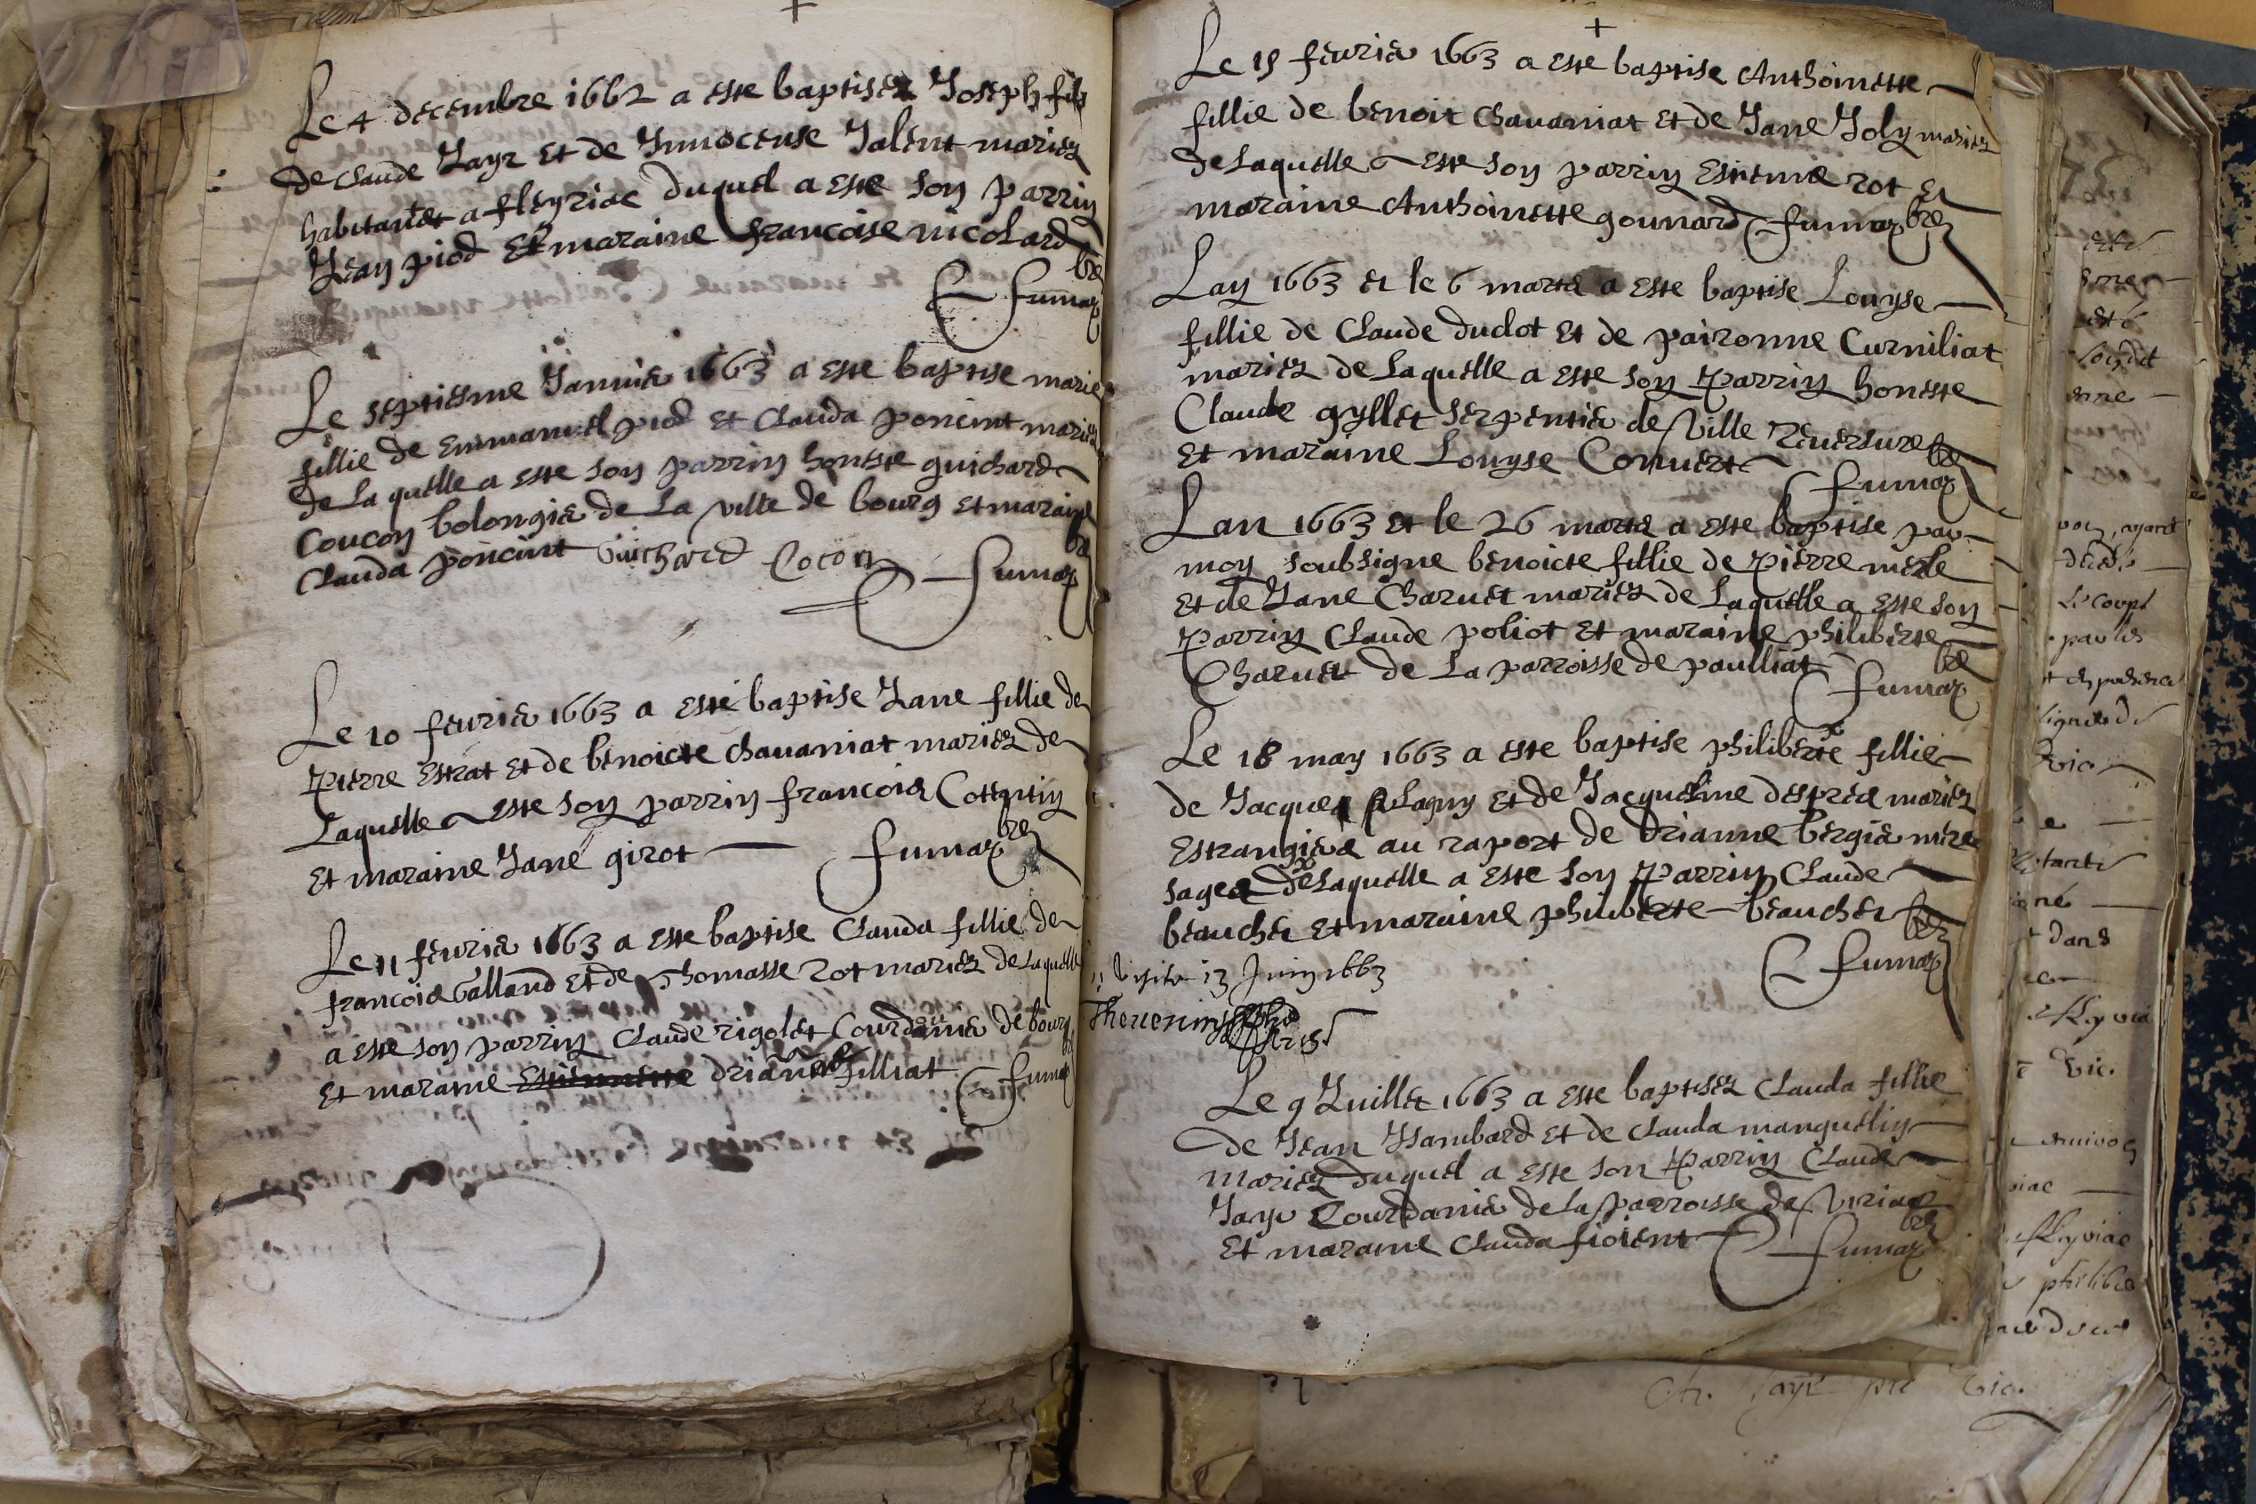 Le 4 decembre 1662 a este baptisez Joseph filz
de claude Jayr et de Innocense Jalent mariez
habitandt a fleyriac duquel a este son parrin
Jean piod Et maraine francoise nicolard
Fumaz bre
Le septiesme Januie 1663 a este baptise marie
fillie de Emmanuel piod et Clauda poncint mariez
de la quelle a este son parrin honeste guichard
Coucon bolongie de la ville de bourg et maraine
Clauda poncint Guichard Cocon Fumaz bre
Le 10 feurie 1663 a este baptise Jane fillie de
Pierre Estrat et de benoicte chauaniat mariez de
Laquelle a este son parrin francois Cottentin
Et maraine Jane girot fumaz bre
Le 11 feurie 1663 a este baptise Clauda fillie de
francois Galland et de Thomasse rot mariez de laquelle
a este son parrin Claude rigolet Courdanie de bourg
Et maraine Estiennette drianne filliat Fumaz
Le 15 feurie 1663 a este baptise Anthoinette
fillie de benoit Chauaniat et de Jane Joly mariez
de Laquelle a este son parrin Estienne rot et
maraine Anthoinette gounard fumaz bre
Lan 1663 et le 6 mars a este baptise Louyse
fillie de Claude duclot et de paironne Curniliat
mariez de Laquelle a este son parrin honeste
Claude gyllet serpentie de Ville Reuersure
Et maraine Louyse Conuert Fumaz bre
Lan 1663 et le 26 mars a este baptise par
moy soubsigne benoicte fillie de Pierre merle
Et de Jane Charuet mariez de Laquelle a este son
Parrin Claude poliot et maraine philiberte
Charuet de La parroisse de paulliat Fumaz bre
Le 18 may 1663 a este baptise philiberte fillie
de Jacques Plagny et de Jacqueline despres mariez
Estrangies au raport de drianne bergie mere
sage de Laquelle a este son Parrin Claude
beauchet et maraine philiberte beauchet
Fumaz bre
Visite 13 Juin 1663
Theuenin
Le 9 Juillet 1663 a este baptisez Clauda fillie
de Jean Isambard et de clauda manguelin
Mariez duquel a este son Parrin Claude
Jayr Courdanie de la parroisse de Viriat
Et maraine Clauda fioient Fumaz bre